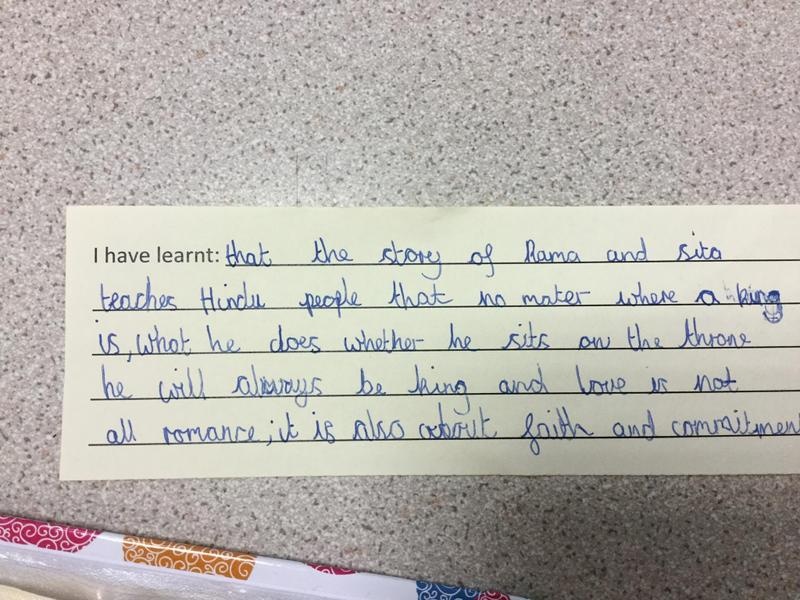 I have learnt: that the story of Rama and sita
teaches Hindu people that no mater where a king
is, what he does whether he sits on the throne
he will always be king and love is not
all romance; it is also about faith and commitment